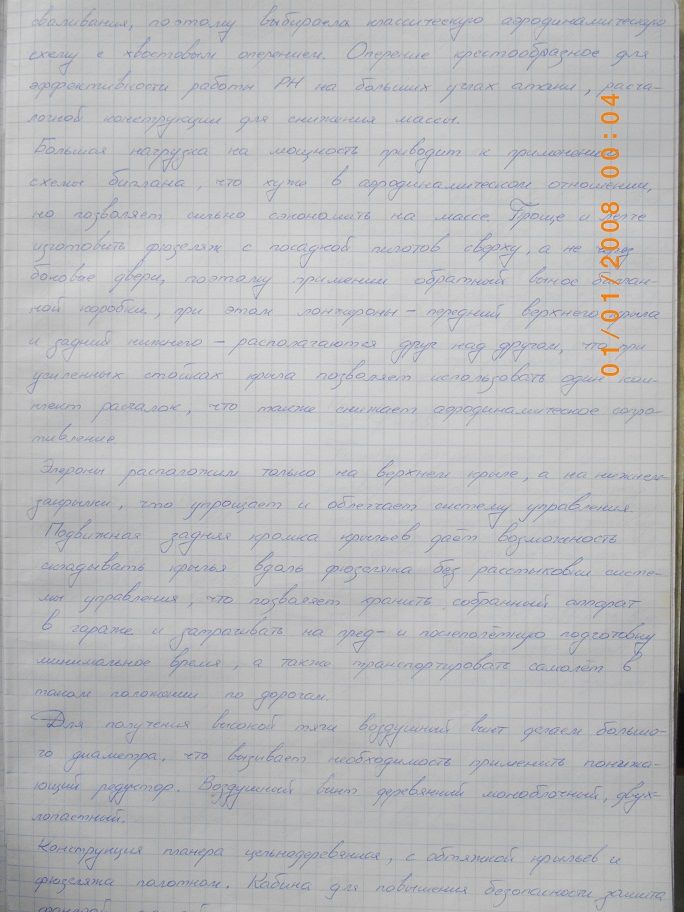 сваливания, поэтому выбираем классическую аэродинамическую
схему с хвостовым оперением. Оперение крестообразное для
эффективности работы РН на больших углах атаки, расча-
лочной конструкции для снижения массы.
Большая нагрузка на мощность приводит к применению
схемы биплана, что хуже в аэродинамическом отношении,
но позволяет сильно сэкономить на массе. Проще и легче
изготовить фюзеляж с посадкой пилотов сверху, а не через
боковые двери, поэтому применим обратный вынос биплан-
ной коробки, при этом лонжероны – передний верхнего крыла
и задний нижнего – располагаются друг над другом, что при
усиленных стойках крыла позволяет использовать один ком-
плект расчалок, что также снижает аэродинамическое сопро-
тивление.
Элероны расположим только на верхнем крыле, а на нижнем-
закрылки, что упрощает и облегчает систему управления.
Подвижная задняя кромка крыльев даёт возможность
складывать крылья вдоль фюзеляжа без расстыковки систе-
мы управления, что позволяет хранить собранный аппарат
в гараже и затрачивать на пред- и послеполётную подготовку
минимальное время, а также транспортировать самолёт в
таком положении по дорогам.
Для получения высокой тяги воздушный винт делаем большо-
го диаметра, что вызывает необходимость применить понижа-
ющий редуктор. Воздушный винт деревянный моноблочный, двух-
лопастный.
Конструкция планера цельнодеревянная, с обтяжкой крыльев и
фюзеляжа полотном. Кабина для повышения безопасности зашита
фанерой
01/01/2008 00:04